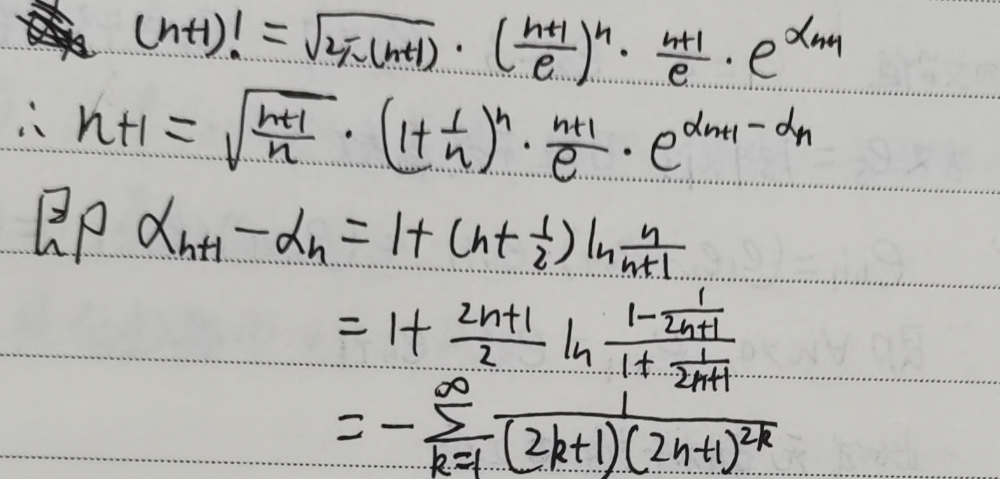 (n+1)! = √(2π(n+1)) · ((n+1)/e)^n · (n+1)/e · e^(α_(n+1))
∴ n+1 = √((n+1)/n) · (1+1/n)^n · (n+1)/e · e^(α_(n+1) - α_n)
即 α_(n+1) - α_n = 1 + (n+1/2) ln n/(n+1)
= 1 + (2n+1)/2 ln (1 - 1/(2n+1))/(1 + 1/(2n+1))
= - ∑_(k=1)^∞ 1/((2k+1)(2n+1)^(2k))